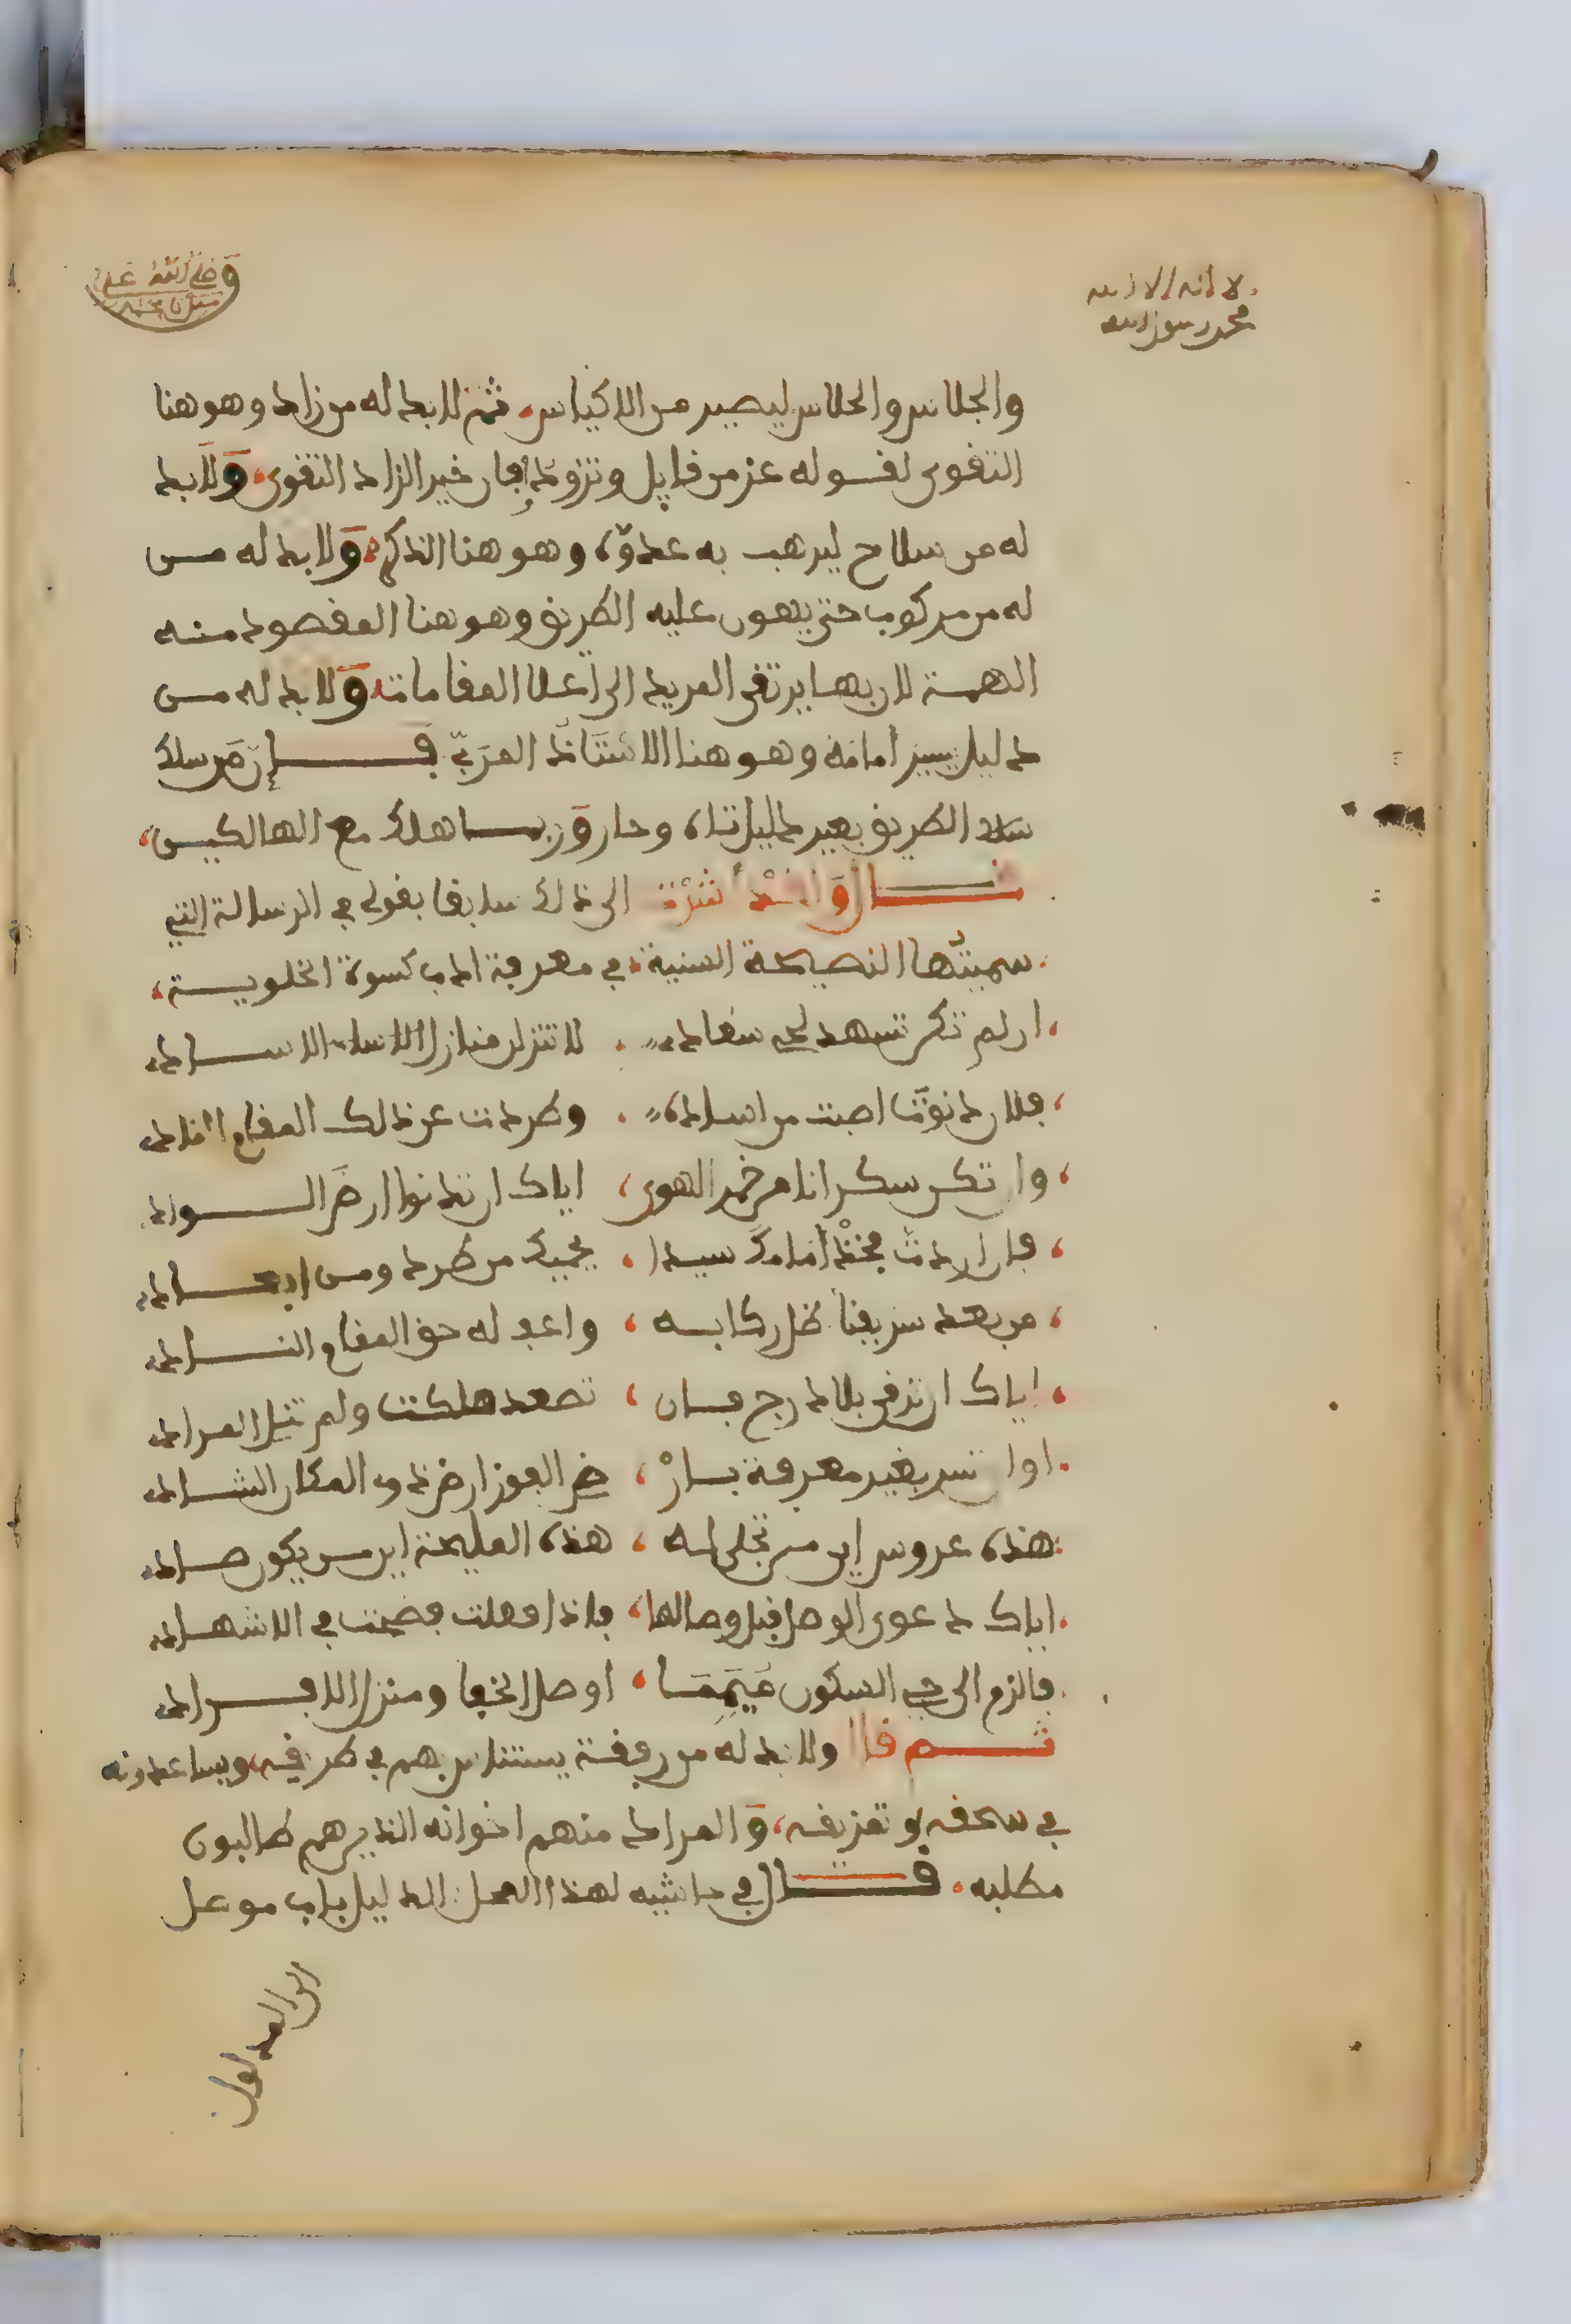 لا إله إلا الله
محمد رسول الله
والجلاس والحلاس ليصير من الاكياس، ثم لا بد له من زاد وهو هنا
التقوى لقوله عز من قايل وتزودوا فإن خير الزاد التقوى، ولا بد
له من سلاح ليرهب به عدوه وهو هنا الذكر، ولا بد له مــن
له من مركوب حتى يهون عليه الطريق وهو هنا المقصود منه
الهمة لان بها يرتقي المريد الى أعلا المقامات، ولا بد له مــن
دليل يسير أمامه وهو هنا الاستاذ المربي فــإن من سلك
سلك الطريق بغير دليل تاه وحار وربما هلك مع الهالكين،
قــال وقد أشرت الى ذلك سابقا بقولي في الرسالة التي
سميتها النصيحة السنية، في معرفة اداب كسوة الخلوية،
ان لم تكن تشهد لحي سعاد، لا تنزلن منازل الاسياد
فلان دنوت اصبت من اسياده، وطردت عن ذلك المقام
وان تكن سكرانا من خمر الهوى، اياك ان تدنوا ارض الــواد
فان اردت فخذ أمامك سيدا، يحميك من طرد ومن ابعــاد
من بعد سريقنا ظل ركابــه، واعرف له حق المقام النــاد
اياك ان ترقى بلا درج فــان، تصعد هلكت ولم تنل المراد
او ان تسر بغير معرفة بــأرض الفوز ارض ذوى المكان الشــاد
هذه عروس اين من تجلى لــه، هذه المليحة اين من يكون صــاد
اياك دعوى الوصل قبل وصالها، فاذا فعلت فضحت في الاشهاد
فالزم الى حي السكون ميمما، اوصل الخفا ومنزل الافــراد
ثــم قال ولا بد له من رفقة يستانس بهم في طريقه، ويساعدونه
في سحقه وتمزيقه، والمراد منهم اخوانه الذين هم طالبون
مطلبه. قــال في حاشيه لهذا المحل الدليل باب موصل
الى المدلول